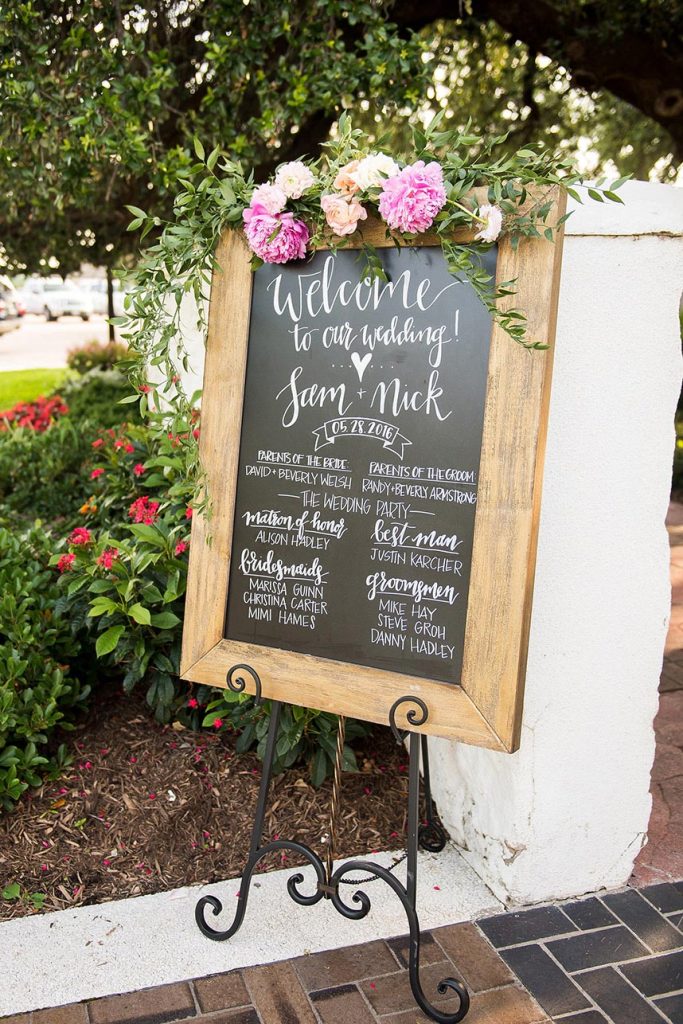 Welcome
to our wedding!
Sam + Nick
05.28.2016
PARENTS OF THE BRIDE:
DAVID + BEVERLY WELSH
PARENTS OF THE GROOM
RANDY + BEVERLY ARMSTRONG
THE WEDDING PARTY
matron of honor
ALISON HADLEY
best man
JUSTIN KARCHER
bridesmaids
MARISSA GUINN
CHRISTINA CARTER
MIMI HAMES
groomsmen
MIKE HAY
STEVE GROH
DANNY HADLEY